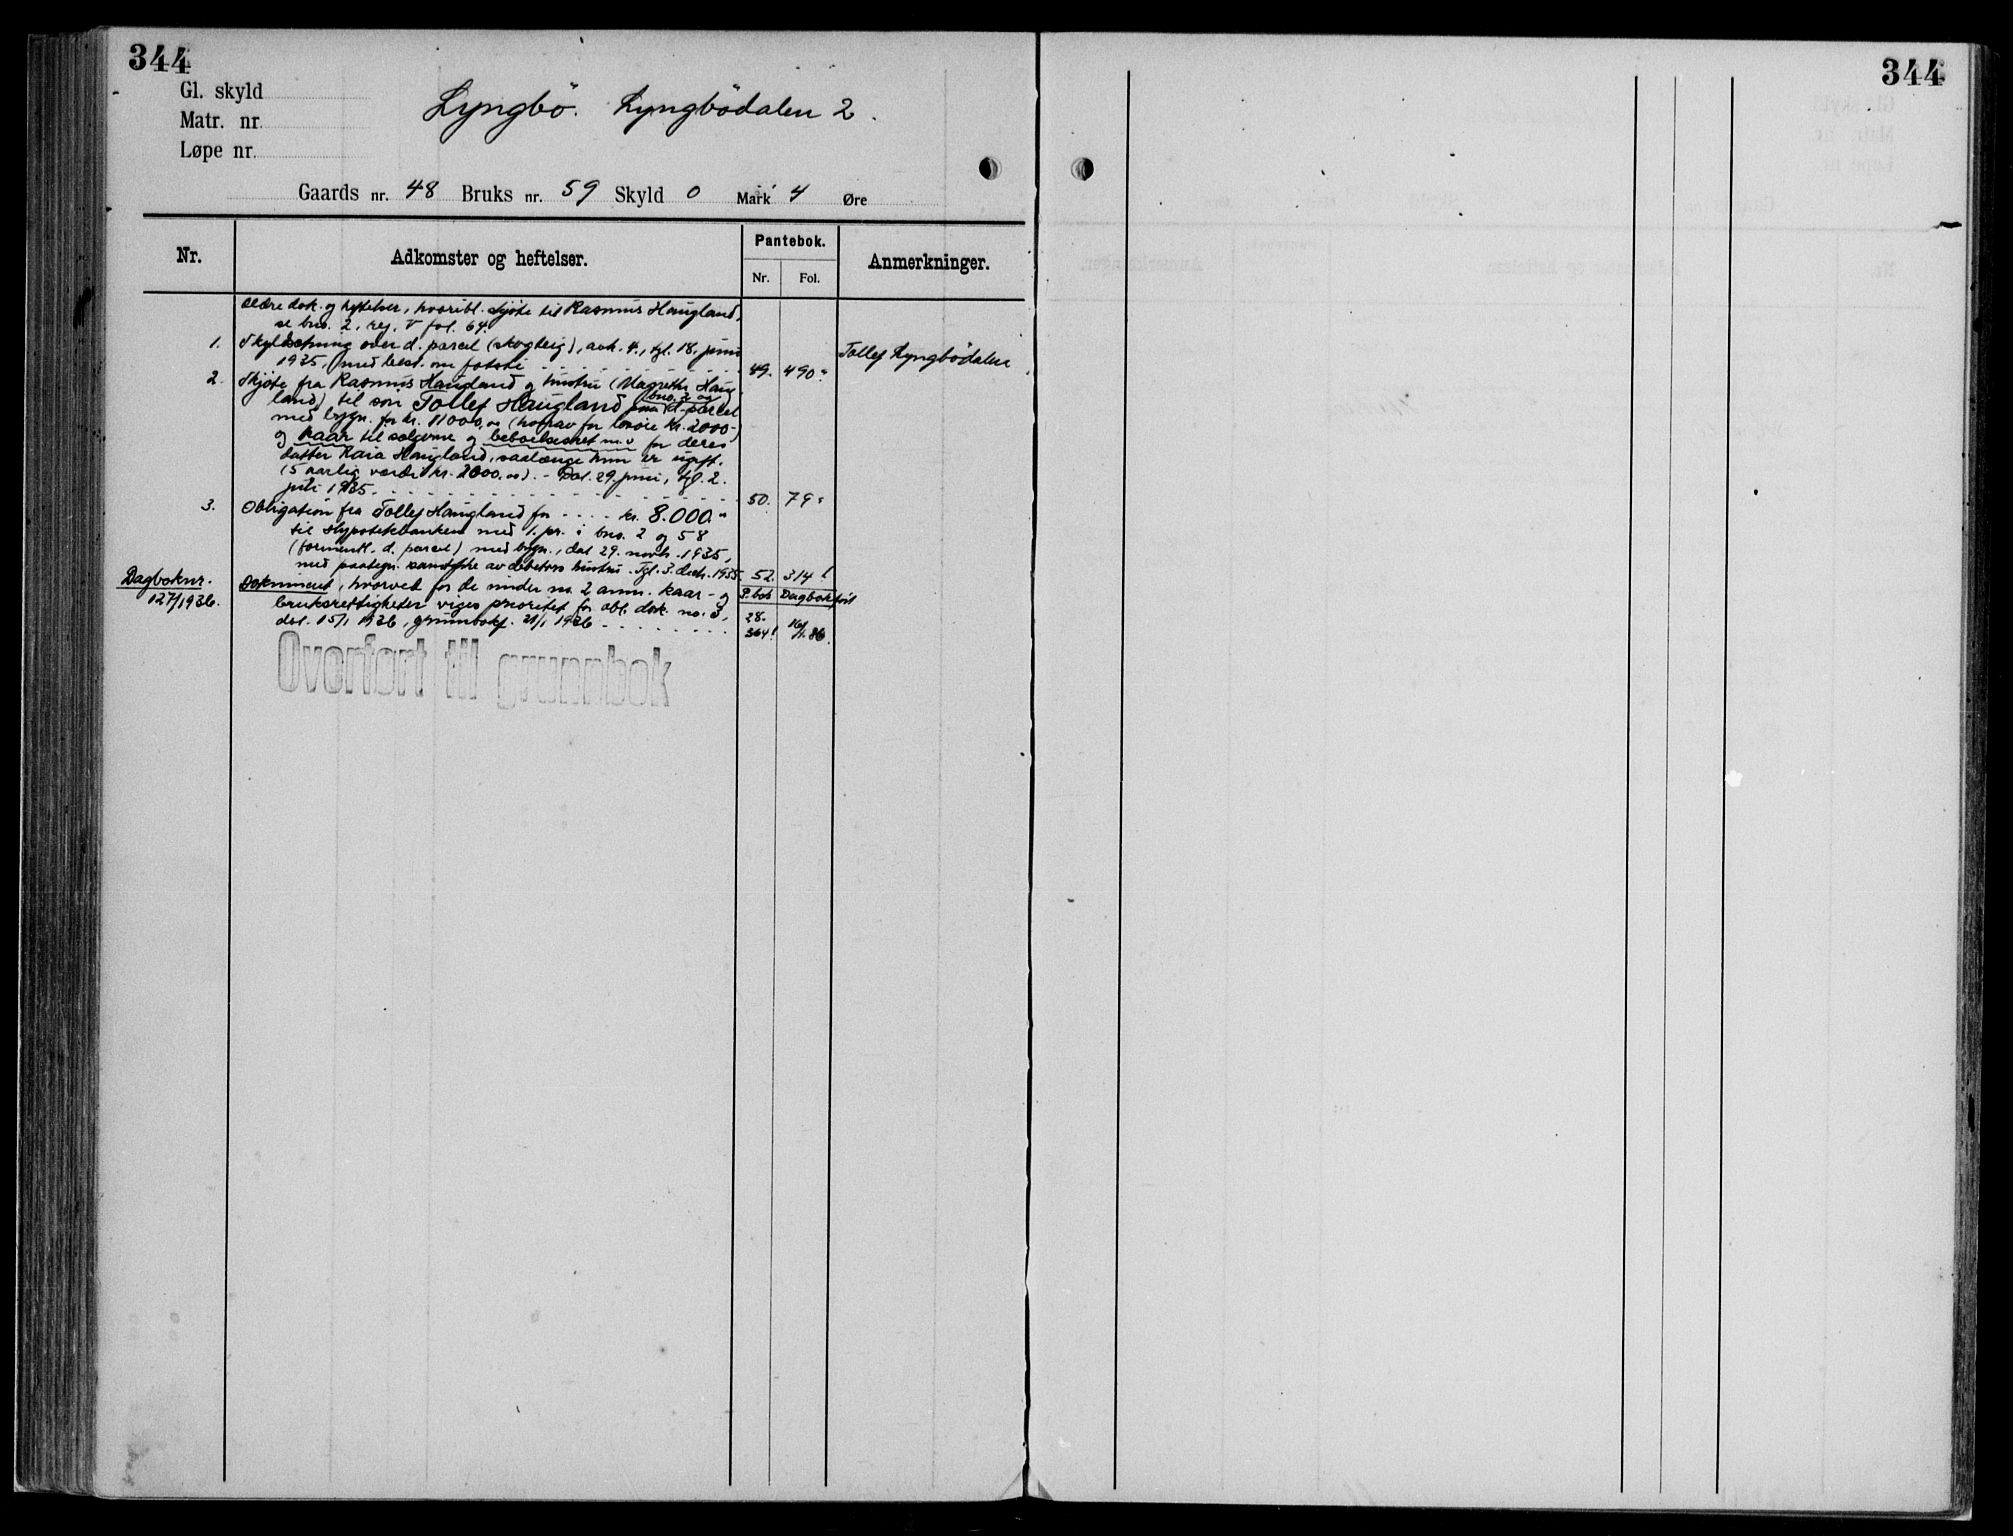 344
344
Gl. skyld
Matr. nr.
Løpe nr.
Lyngbö. Lyngbödalen 2.
Gaards nr. 48 Bruks nr. 59 Skyld 0 Mark 4 Øre
Nr. Adkomster og heftelser. Pantebok. Anmerkninger.
Nr. Fol.
Ældre dok. og heftelser, hvoribl. skjöte til Rasmus Haugland,
se bno. 2, reg. V fol. 64.
1. Skyldsetning over d. parcel (skogteig), avh. 4., tgl. 18. juni
1935, med best. om 49. 490"
Tollef Lyngbödalen
2. Skjöte fra Rasmus Haugland og hustru (Magrethe Haug
land) til sön Tollef Haugland paa bno. 2 og d. parcel
med bygn. for kr. 11000,00 (hvorav for lösöre kr. 2000-)
og kaar til sælgerne og beboelsesret m.v for deres
datter Kaia Haugland, saalænge hun er ugift.
(5 aarlig værdi kr. 2000.00). - Dat. 29. juni, tgl. 2.
juli 1935. 50. 79"
3. Obligation fra Tollef Haugland for .... kr. 8.000."
til Hypotekbanken med 1. pr. i bno. 2 og 58
(formentl. d. parcel) med bygn., dat 29. novb. 1935,
med paategn. samtykke av debitors hustru. Tgl. 3. decb. 1935. 52. 314
Dagboknr. Dokument, hvorved for de under no. 2 anm. kaar- og P.bok Dagbokført
127/1936. bruksrettigheter viges prioritet for obl. dok. no. 3, 28.
dat. 15/1 1936, grunnbokf. 21/1 1936 364! 16/1.36.
Overført til grunnbok